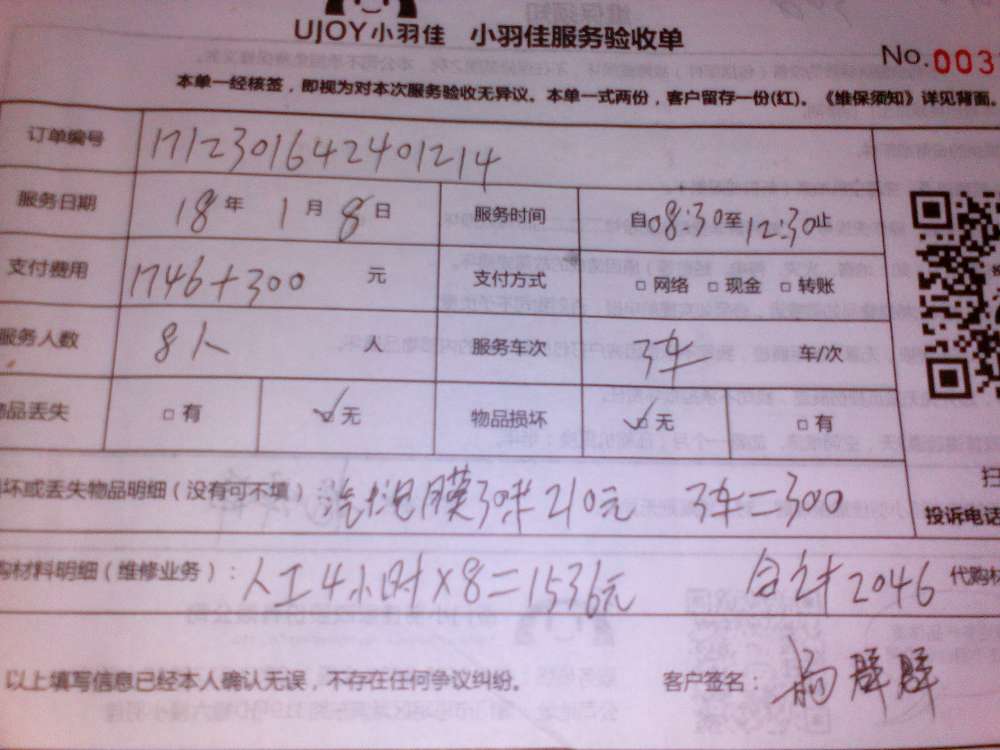 UJOY小羽佳 小羽佳服务验收单
No.003
本单一经核签，即视为对本次服务验收无异议。本单一式两份，客户留存一份(红)。《维保须知》详见背面。
订单编号 1712301642401214
服务日期 18年 1月 8日 服务时间 自08:30至12:30止
支付费用 1746+300 元 支付方式 □网络 □现金 □转账
服务人数 8人 人 服务车次 3车 车/次
物品丢失 □有 ☑无 物品损坏 ☑无 □有
坏或丢失物品明细（没有可不填）: 膜3 210元 3车=300
扫
投诉电话
购材料明细（维修业务）: 人工4小时×8=1536元 合计2046 代购材
以上填写信息已经本人确认无误，不存在任何争议纠纷。 客户签名：杨群群